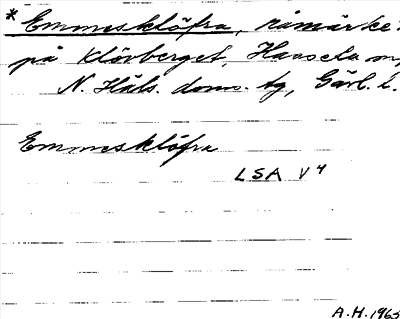 * Emmesklöfra, råmärke
på Klövberget, Hassela sn,
N. Häls. doms. tg, Gävl. l.
Emmesklöfra
LSA V4
A.H. 1965